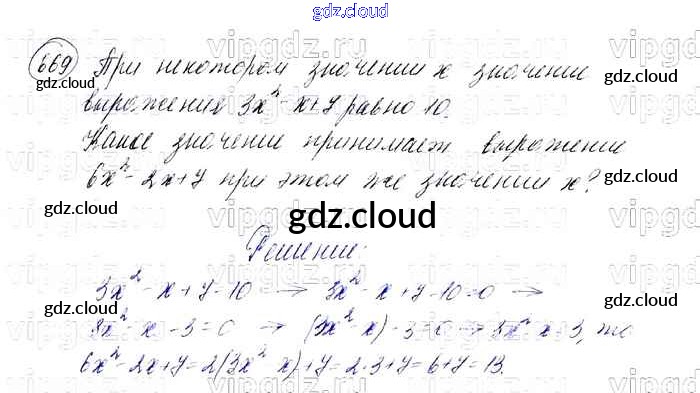 gdz.cloud
669 При некотором значении x значение
выражения 3x²-x+y равно 10.
Какое значение принимает выражение
6x²-2x+y при этом же значении x?
gdz.cloud
Решение:
3x²-x+y-10 → 3x²-x+y-10=0 →
3x²-x-3=0 → (3x²-x)-3=0 → 3x²-x=3, то
6x²-2x+y=2(3x²-x)+y=2·3+y=6+y=13.